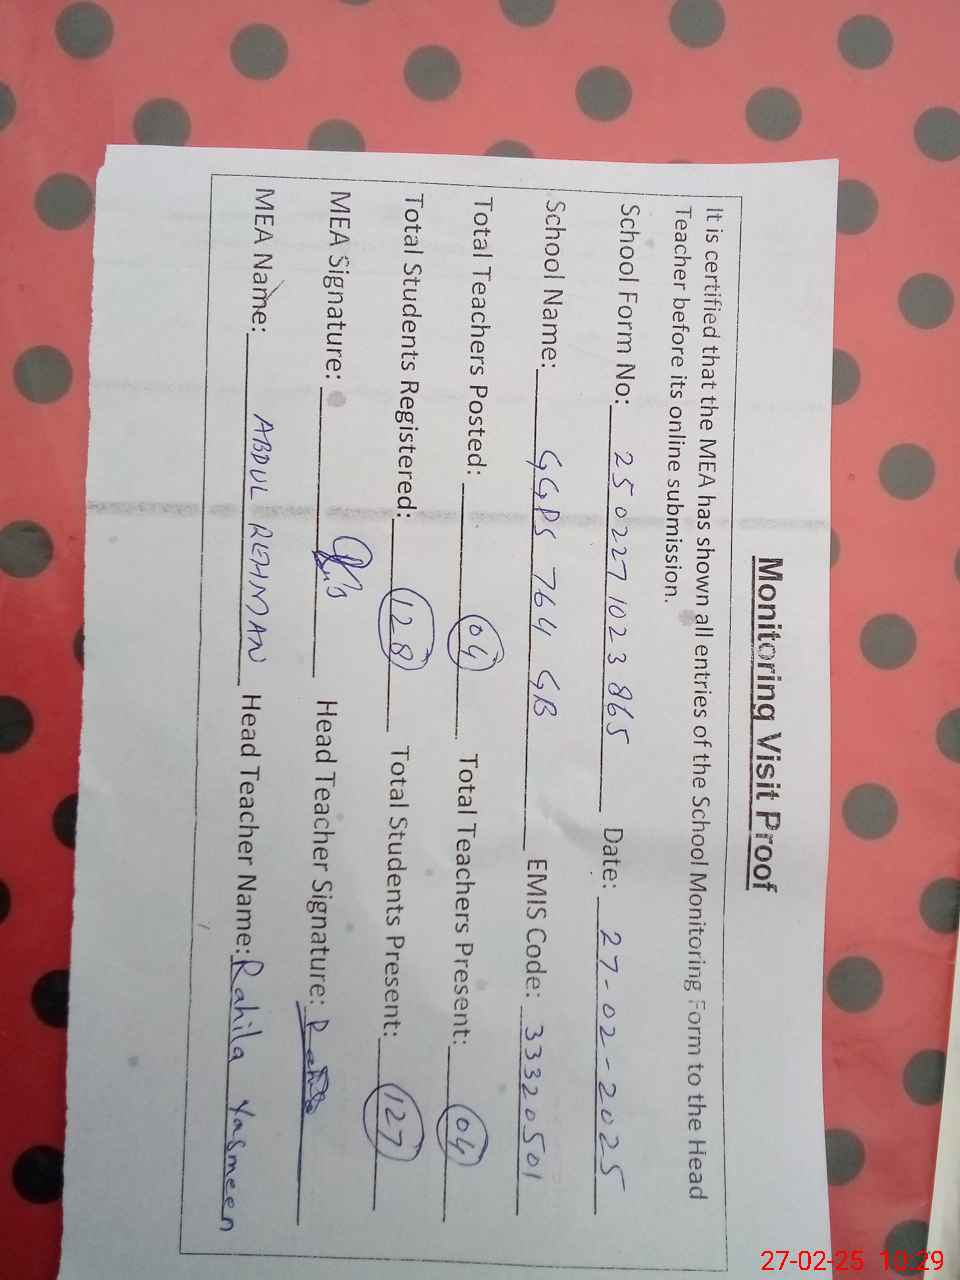 Monitoring Visit Proof
It is certified that the MEA has shown all entries of the School Monitoring Form to the Head
Teacher before its online submission.
School Form No: 2502271023865 Date: 27-02-2025
School Name: GGPS 764 GB EMIS Code: 33320501
Total Teachers Posted: 04 Total Teachers Present: 04
Total Students Registered: 128 Total Students Present: 127
MEA Signature: Head Teacher Signature:
MEA Name: ABDUL REHMAN Head Teacher Name: Rahila Yasmeen
27-02-25 10:29